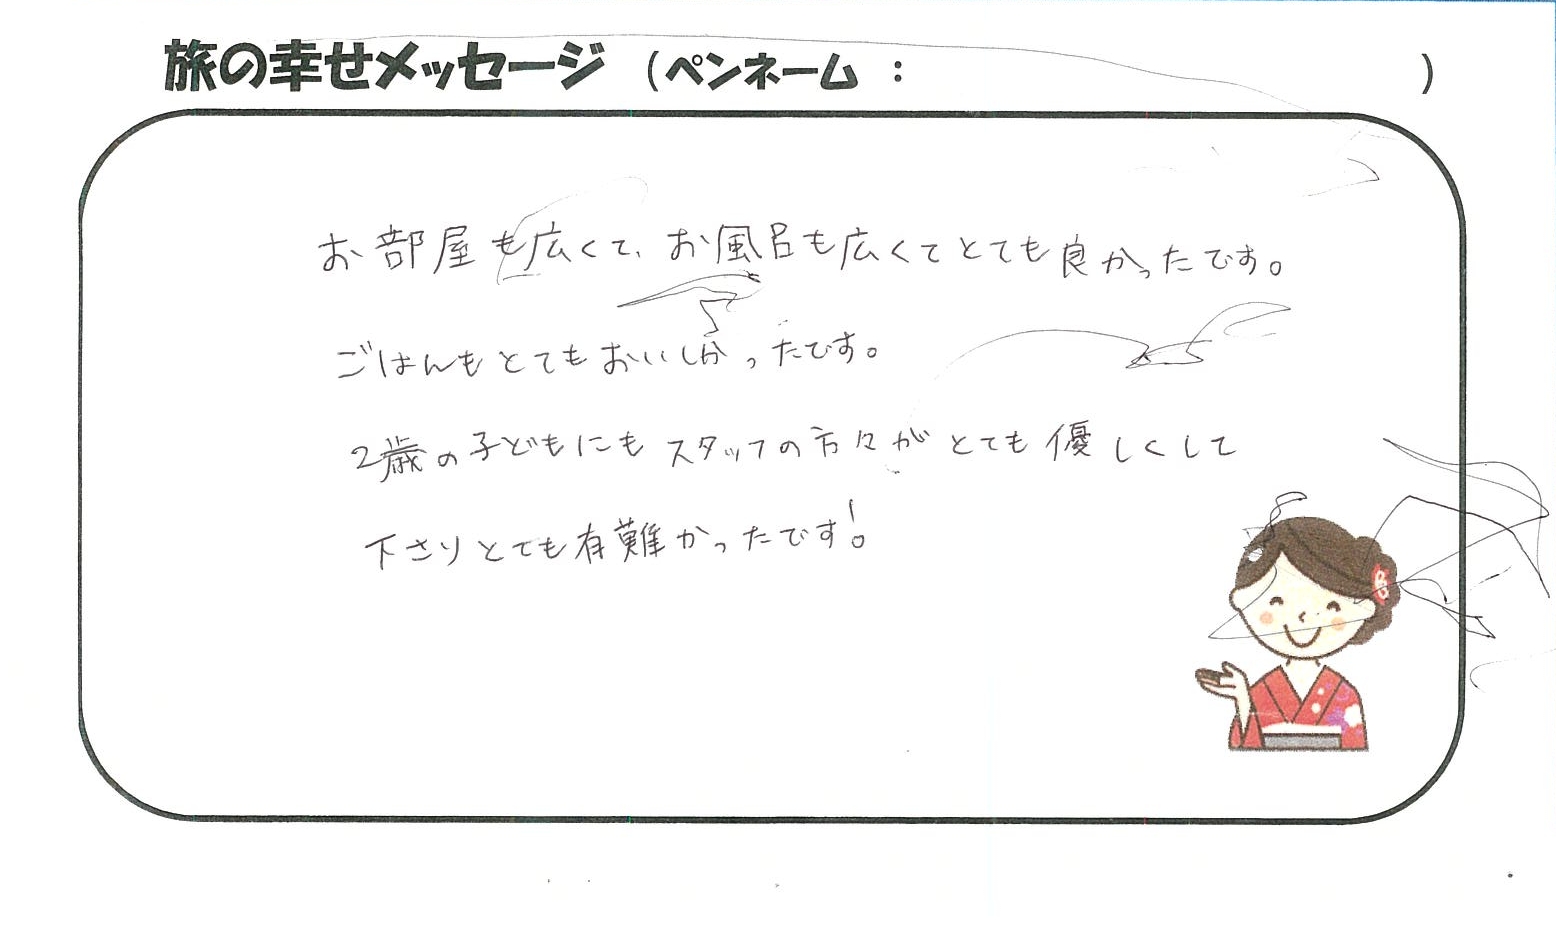 旅の幸せメッセージ （ペンネーム ： ）
お部屋も広くて、お風呂も広くてとても良かったです。
ごはんもとてもおいしかったです。
2歳の子どもにもスタッフの方々がとても優しくして
下さりとても有難かったです!